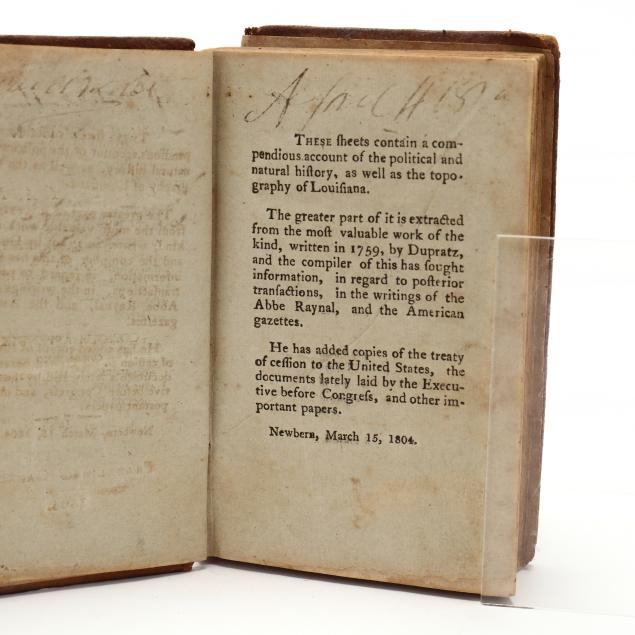 April
THESE ſheets contain a com-
pendious account of the political and
natural hiſtory, as well as the topo-
graphy of Louiſiana.
The greater part of it is extracted
from the moſt valuable work of the
kind, written in 1759, by Dupratz,
and the compiler of this has ſought
information, in regard to poſterior
tranſactions, in the writings of the
Abbe Raynal, and the American
gazettes.
He has added copies of the treaty
of ceſſion to the United States, the
documents lately laid by the Execu-
tive before Congreſs, and other im-
portant papers.
Newbern, March 15, 1804.